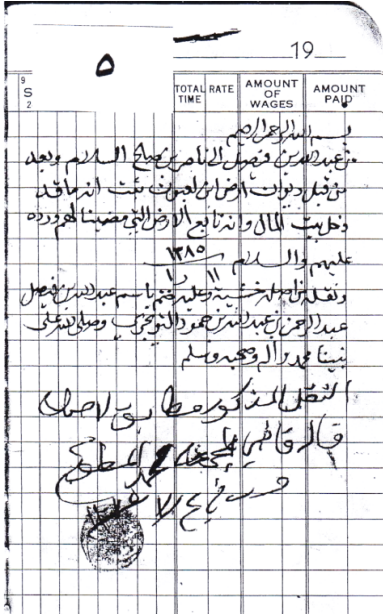 ٥
19
9 S 2 TOTAL TIME RATE AMOUNT OF WAGES AMOUNT PAID
بسم الله الرحمن الرحيم
من عبدالله بن فيصل الى ناصر بن صالح السلام وبعد
من قبل ارض ابن ثبت انه ما قد
دخل بيت المال وانه تابع الارض التي مضيناهم ورده
عليهم والسلام ١٣٨٥
ونقله من اصله خشية وعليه ختم باسم عبدالله بن فيصل
عبدالرحمن بن عبدالله بن حمود التويجري وصلى الله على
نبينا محمد واله وصحبه وسلم
النقل المذكور مطابق لاصله
قاله قاضي محمد المطوع